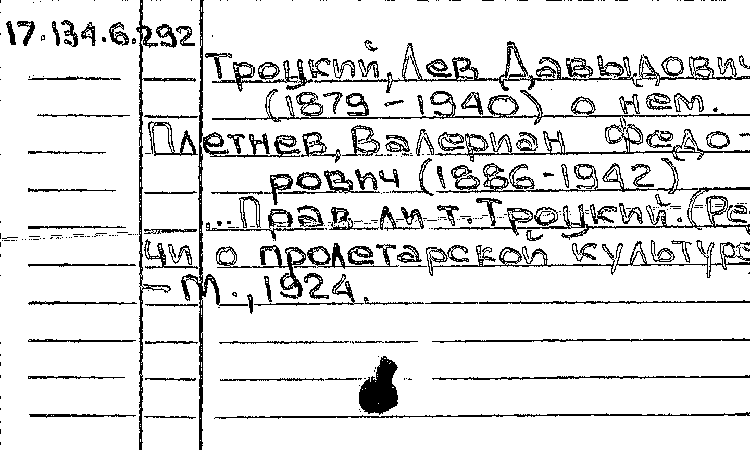 17.134.6.292
Троцкий, Лев Давыдович
(1879-1940) о нем.
Плетнев, Валериан Федо-
рович (1886-1942)
...Прав ли т. Троцкий. (Ре
чи о пролетарской культуре
- М., 1924.